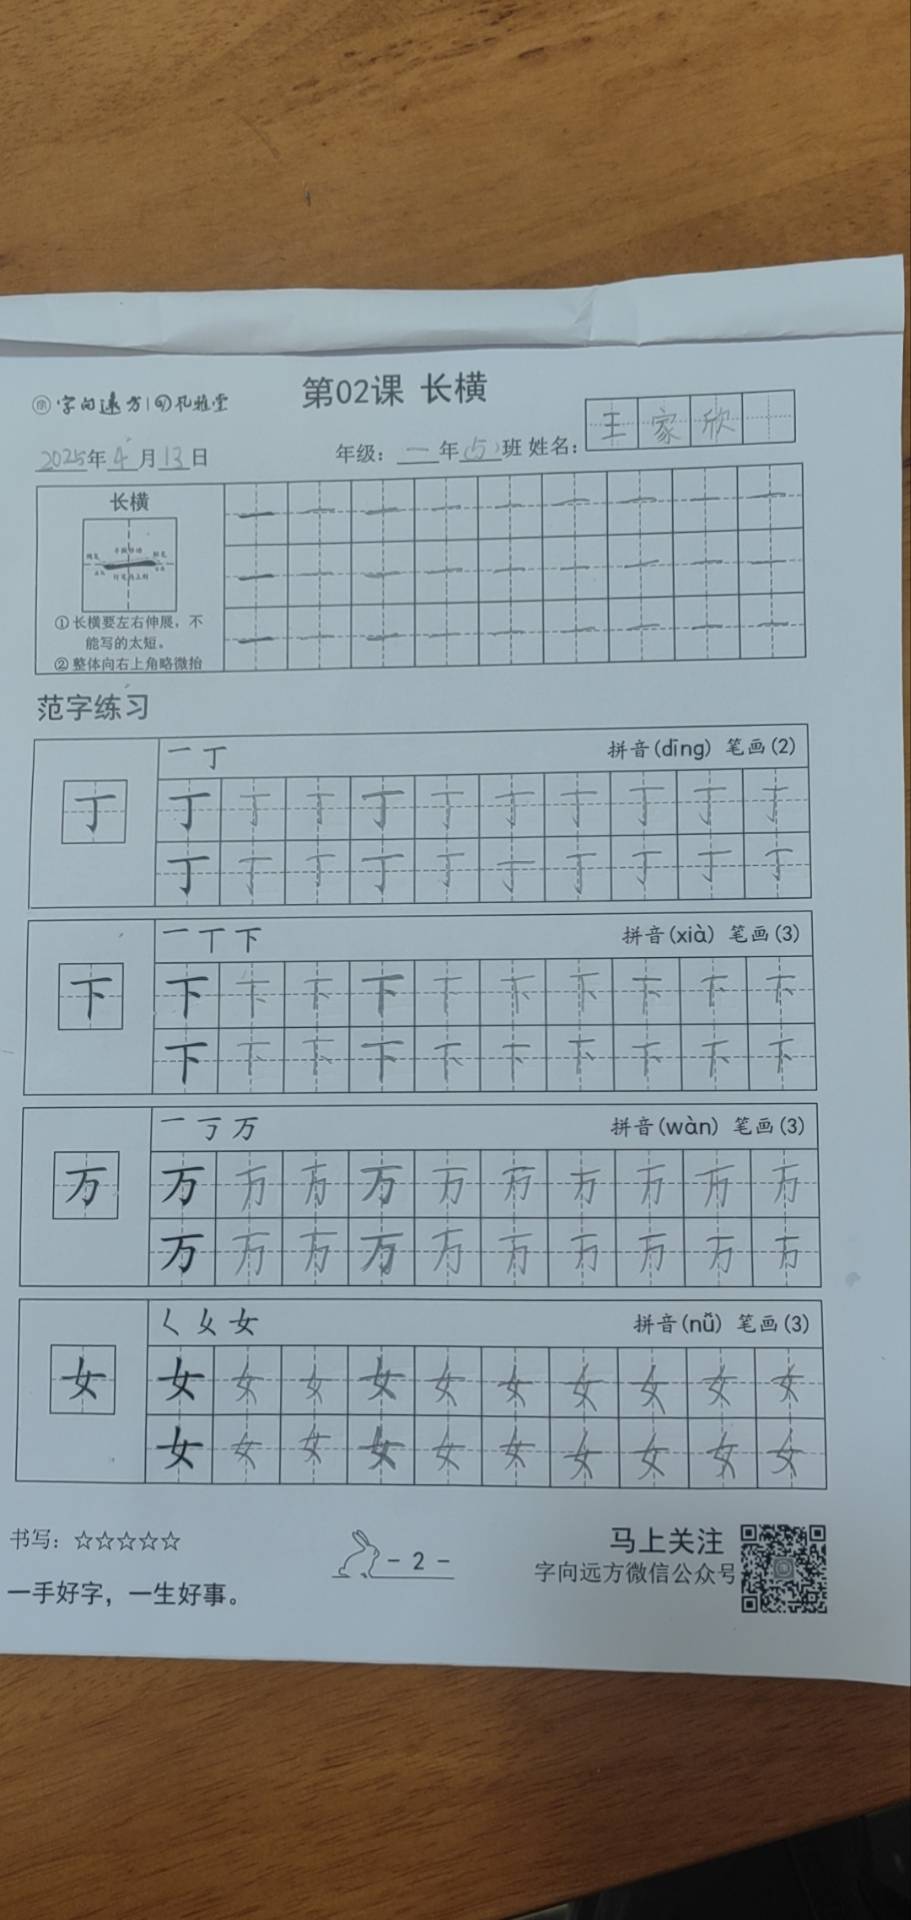 字向远方 孔雅堂
第02课 长横
2025年4月13日 年级：一年(5)班 姓名：王家欣
长横
①长横要左右伸展，不
能写的太短。
②整体向右上角略微抬
一 一 一 一 一 一 一 一 一
一 一 一 一 一 一 一 一 一
一 一 一 一 一 一 一 一 一
范字练习
一 丁 拼音(dīng) 笔画(2)
丁 丁 丁 丁 丁 丁 丁 丁 丁 丁 丁
丁 丁 丁 丁 丁 丁 丁 丁 丁 丁
一 丅 下 拼音(xià) 笔画(3)
下 下 下 下 下 下 下 下 下 下 下
下 下 下 下 下 下 下 下 下 下
一 丂 万 拼音(wàn) 笔画(3)
万 万 万 万 万 万 万 万 万 万 万
万 万 万 万 万 万 万 万 万 万
𡿨 女 女 拼音(nǚ) 笔画(3)
女 女 女 女 女 女 女 女 女 女 女
女 女 女 女 女 女 女 女 女 女
书写：☆☆☆☆☆
一手好字，一生好事。
- 2 -
马上关注
字向远方微信公众号